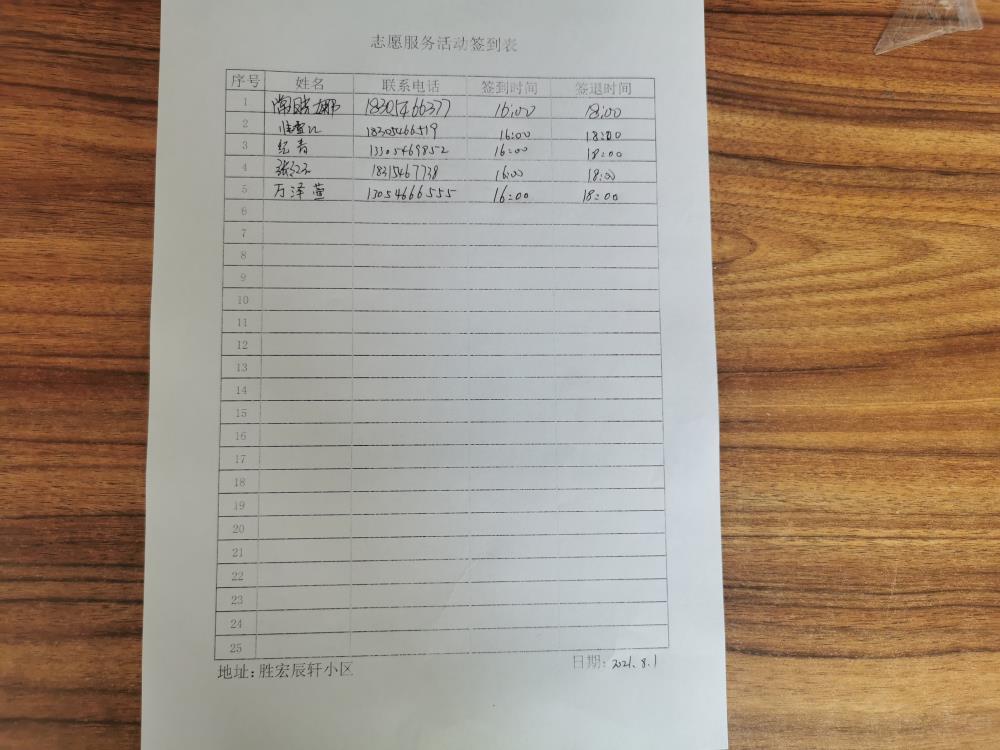 志愿服务活动签到表
序号 姓名 联系电话 签到时间 签退时间
1 18305466377 16:00 18:00
2 18305466519 16:00 18:00
3 纪青 13305469852 16:00 18:00
4 18315467738 16:00 18:00
5 万泽萱 13054666555 16:00 18:00
6
7
8
9
10
11
12
13
14
15
16
17
18
19
20
21
22
23
24
25
地址:胜宏辰轩小区 日期: 2021.8.1